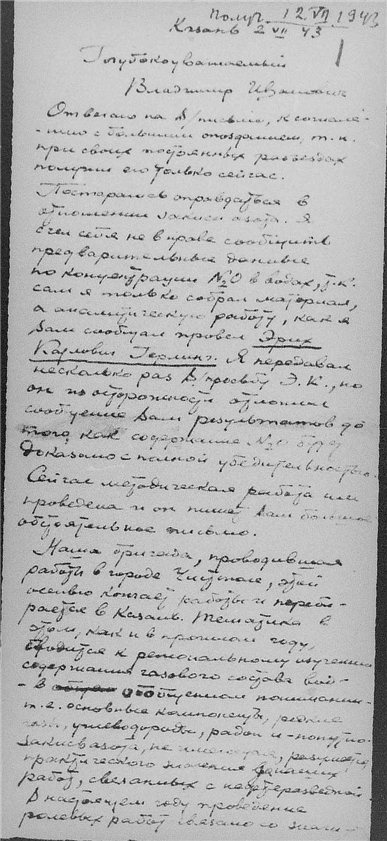 Получ. 12.VII 1943
Казань 2 VII 43
Глубокоуважаемый
Владимир Иванович
Отвечаю на В/письмо, к сожале-
-нию с большим опозданием, т.к.
при своих постоянных разъездах
получил его только сейчас.
Постараюсь оправдаться в
отношении закиси азота. Я
счел себя не в праве сообщить
предварительные данные
по концентрации N2O в водах, т.к.
сам я только собрал материал,
а аналитическую работу, как я
Вам сообщал провел Эрик
Карлович Герлинг. Я передавал
несколько раз В/просьбу Э.К., но
он из осторожности отложил
сообщение Вам результатов до
того, как содержание N2O будет
доказано с полной убедительностью.
Сейчас методическая работа им
проведена и он пишет Вам большое
обстоятельное письмо.
Наша бригада, проводившая
работы в городе Чистополе, этой
осенью кончает работы и переби-
рается в Казань. Тематика в
этом, как и в прошлом году,
сводится к региональному изучению
содержания газового состава вод-
- в обобщенном понимании-
т.е. основные компоненты, редкие
газы, углеводороды, радон и - попутно-
закись азота, не имеющая, разумеется
практического значения для
работ, связанных с нефтеразведкой
В настоящем году проведение
полевых работ связано со значи-